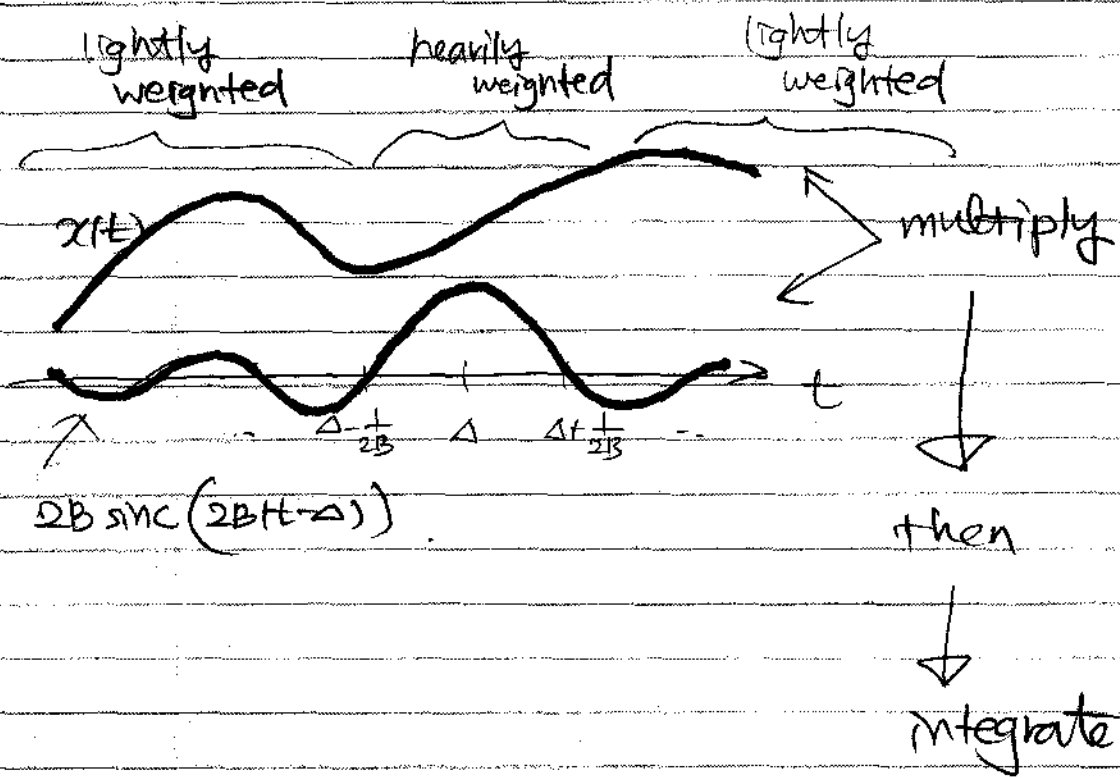 lightly
weighted
heavily
weighted
lightly
weighted
x(t)
multiply
t
.. Δ-1/2B Δ Δ+1/2B ..
2B sinc(2B(t-Δ)).
then
integrate